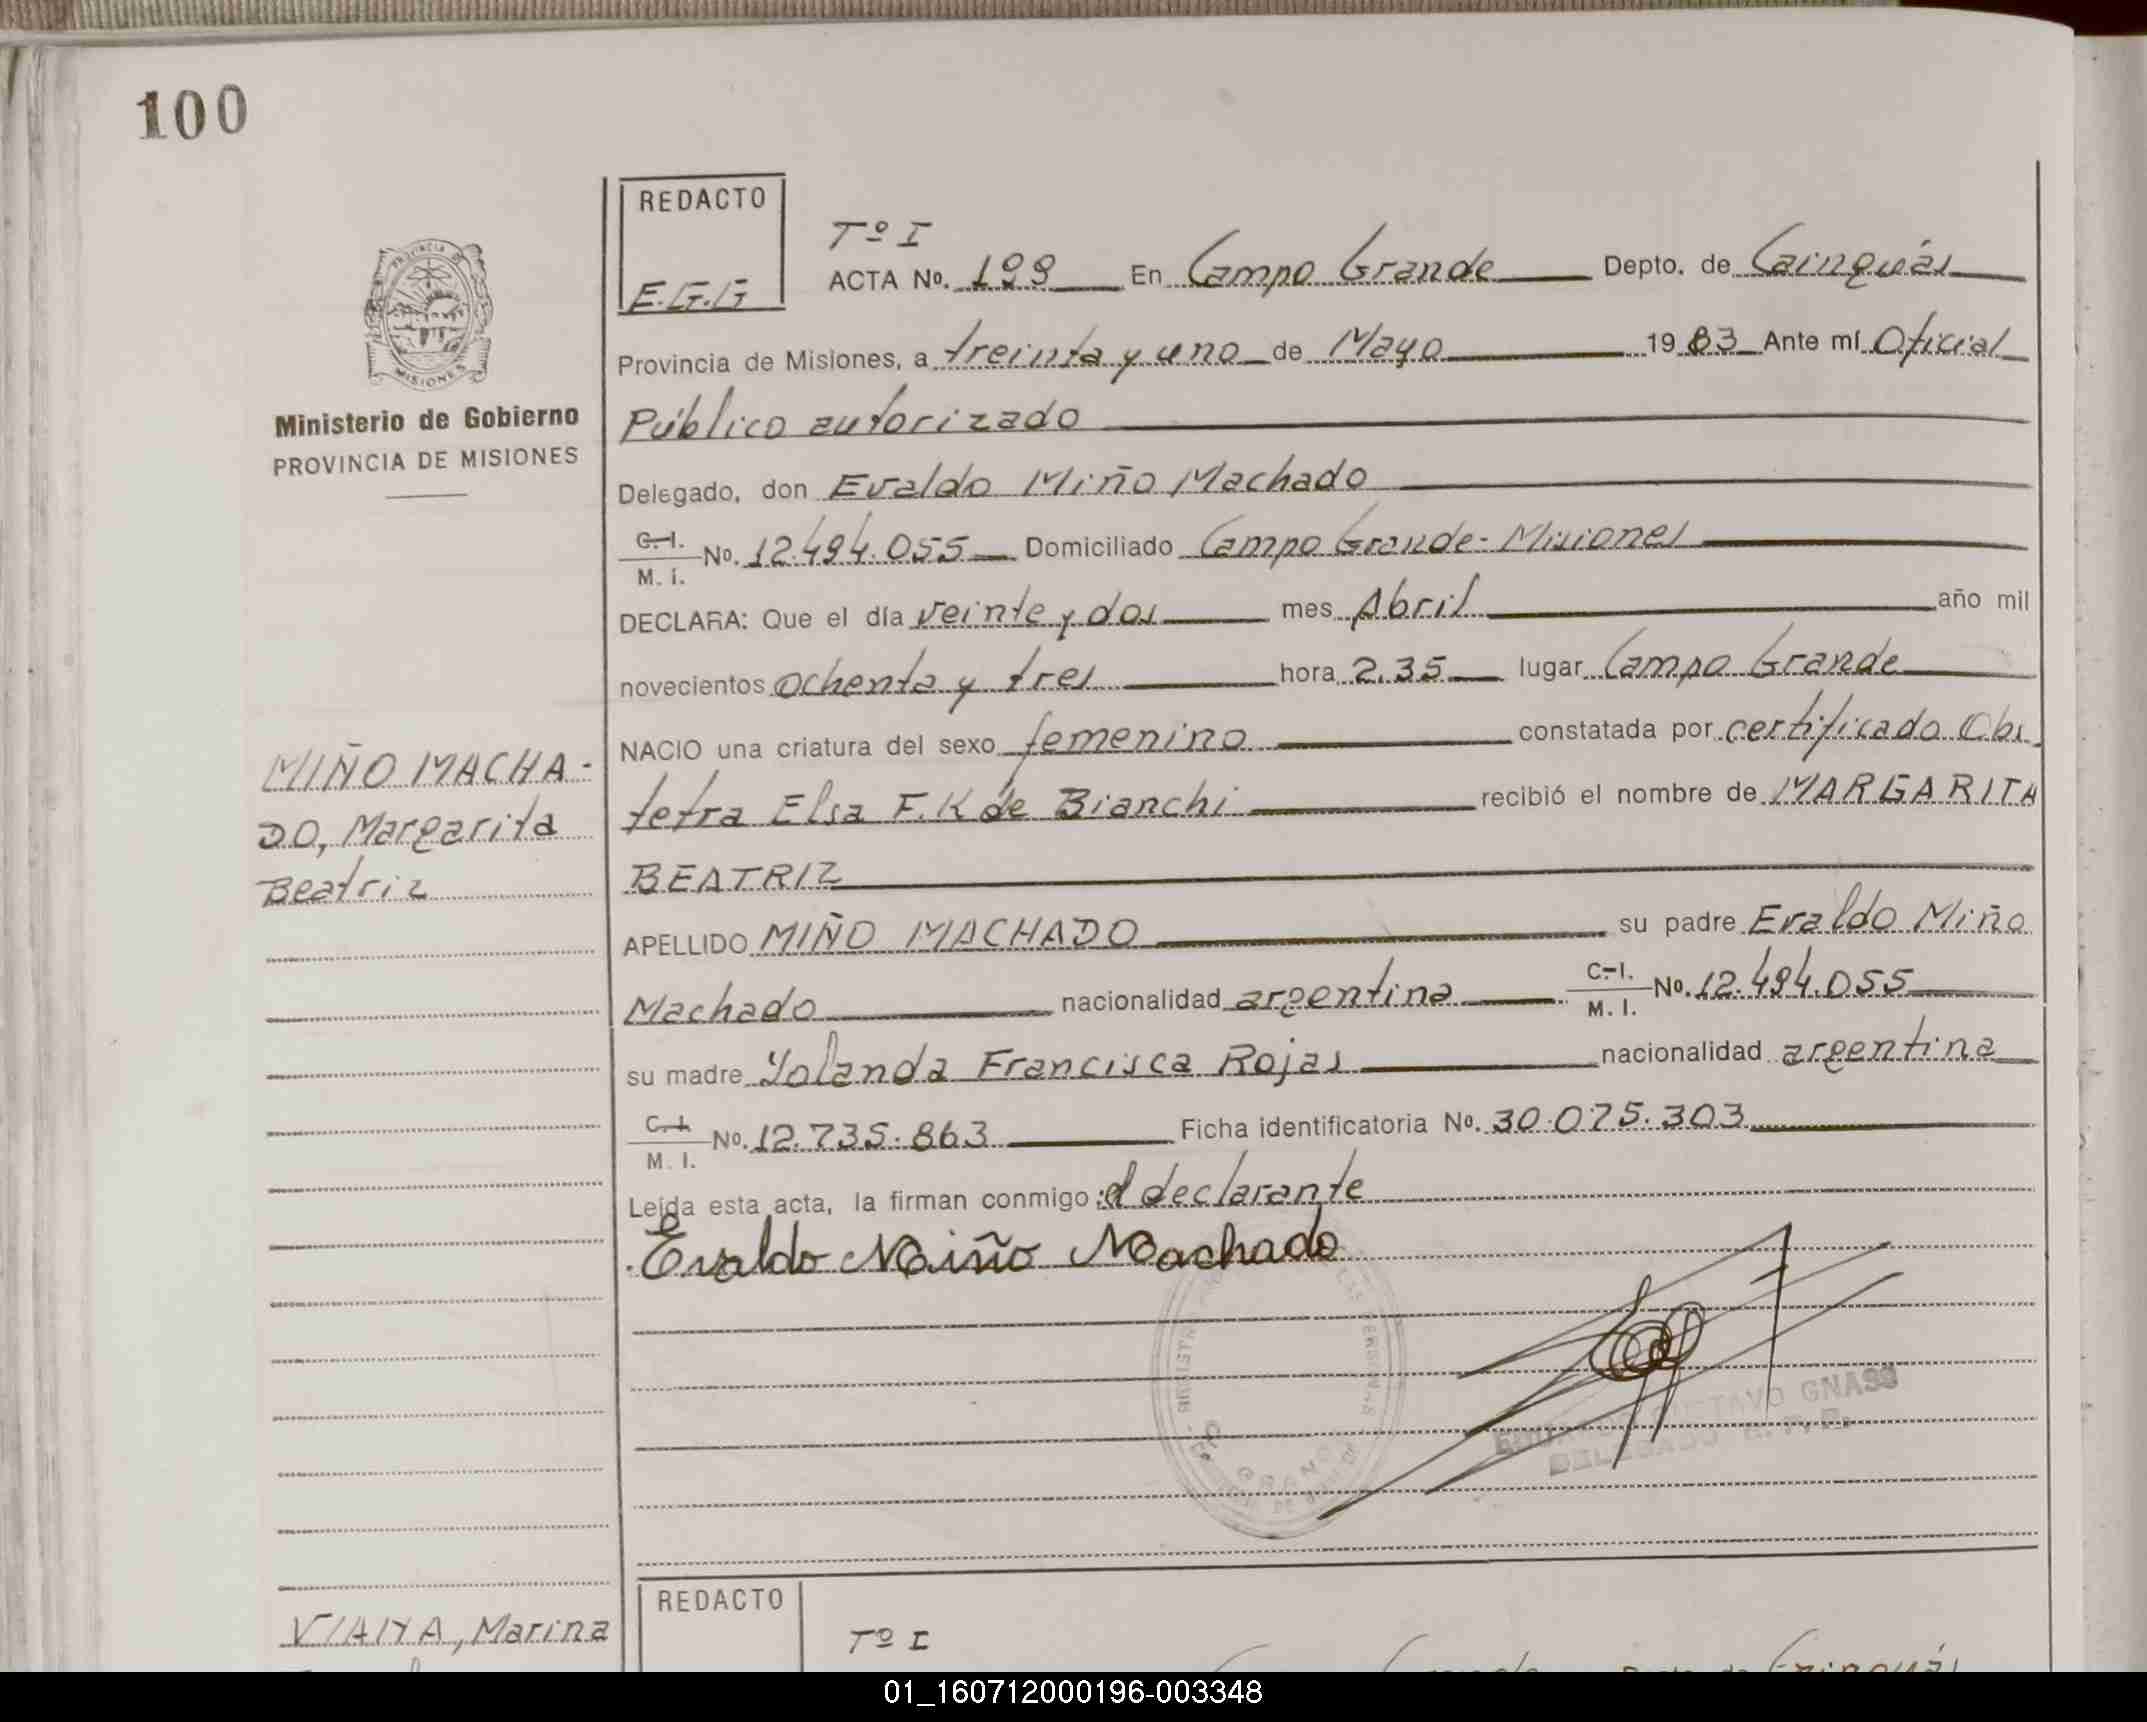 100
REDACTO
E.G.G
Tº I
ACTA Nº. 199 En Campo Grande Depto. de Cainguás
Provincia de Misiones, a treinta y uno de Mayo 1983 Ante mí Oficial
Público autorizado
Delegado, don Evaldo Miño Machado
C.I. M. I. Nº. 12.494.055 Domiciliado Campo Grande - Misiones
DECLARA: Que el día veinte y dos mes Abril año mil
novecientos ochenta y tres hora 2.35 lugar Campo Grande
NACIO una criatura del sexo femenino constatada por certificado Obs
tetra Elsa F.K de Bianchi recibió el nombre de MARGARITA
BEATRIZ
APELLIDO MIÑO MACHADO su padre Evaldo Miño
Machado nacionalidad argentina C.I. M. I. Nº. 12.494.055
su madre Yolanda Francisca Rojas nacionalidad argentina
C.I. M. I. Nº. 12.735.863 Ficha identificatoria Nº. 30.075.303
Leída esta acta, la firman conmigo: el declarante
Evaldo Miño Machado
PROVINCIA DE
MISIONES
Ministerio de Gobierno
PROVINCIA DE MISIONES
MIÑO MACHA-
DO, Margarita
Beatriz
GUSTAVO GNASS
DELEGADO R.P.P.
VIANA, Marina
REDACTO
Tº I
01_160712000196-003348